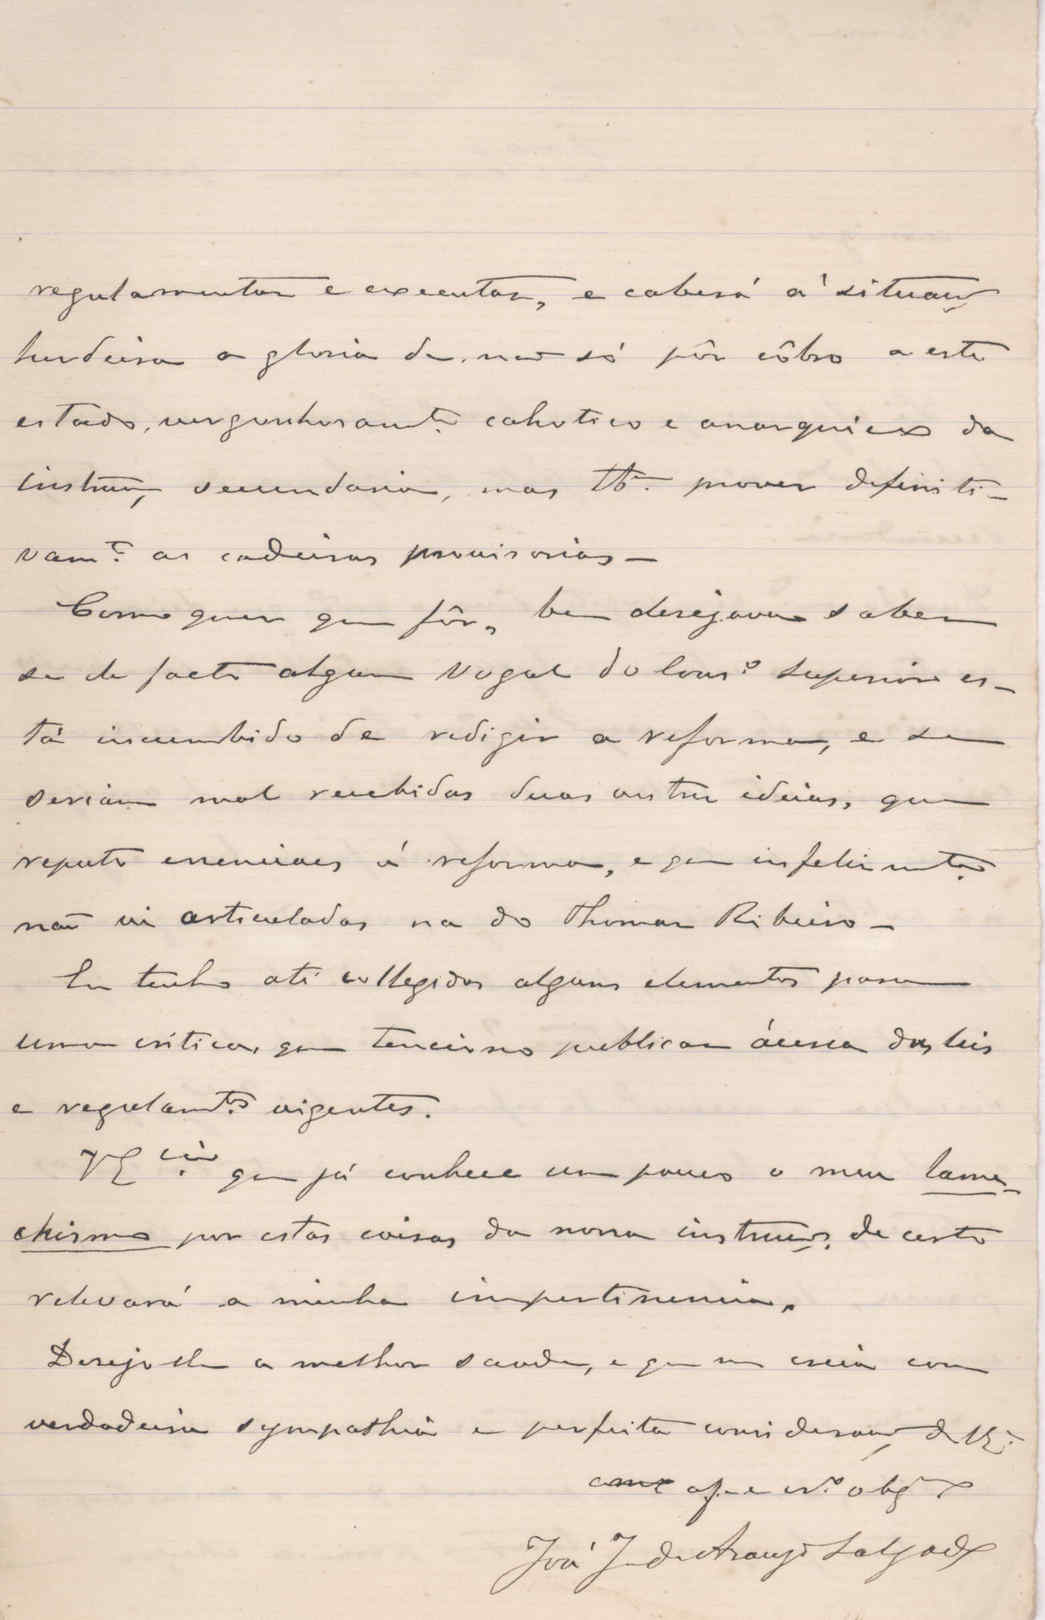 regulamentar e executar, e caberá á situação
herdeira a gloria de não só pôr côbro a este
estado, vergonhosamte. cahotico e anarquico da
instrução secundaria, mas tb. prover definiti-
vamte. as cadeiras provisorias –
Como quer que fôr, bem desejava saber
se de facto algum vogal do Conso. superior es-
tá incumbido de redigir a reforma, e se
seriam mal recebidas duas outras ideias, que
reputo essenciaes á reforma, e que infelizmte.
não vi articuladas na do Thomaz Ribeiro –
Eu tenho até collegidos alguns elementos para
uma critica, que tenciono publicar ácerca das leis
e regulamtos. vigentes.
VExcia. que já conhece um pouco o meu lame-
chismo por estas coisas da nossa instrução, de certo
relevará a minha impertinencia.
Desejo-lhe a melhor saude, e que me creia com
verdadeira sympathia e perfeita consideração de VE.
amo af. e cro. obgo
José J. de Araujo Salgado